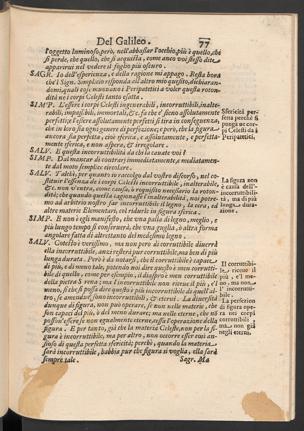 Del Galileo. 77
l'oggetto luminoso, però, nell'abbassar l'occhio, più è quello, che
si perde, che quello, che si acquista, come anco voi stesso dite
apparirui nel vedere il foglio più oscuro.
SAGR. Io dell'esperienza, e della ragione mi appago. Resta hora
che'l Sign. Simplicio risponda all'altro mio quesito, dichiaran-
domi, quali cose muouano i Peripatetici a voler questa rotondi-
tà ne i corpi Celesti tanto esatta.
SIMP. L'essere i corpi Celesti ingenerabili, incorruttibili, inalte-
rabili, impassibili, immortali, &c. fa che e' sieno assolutamente
perfetti; e l'essere assolutamente perfetti si tira in conseguenza,
che in loro sia ogni genere di perfezione; e però, che la figura
ancora sia perfetta, cioè sferica, e assolutamente, e perfetta-
mente sferica, e non aspera, & irregolare.
Sfericità per-
fetta perchè si
ponga ne cor-
pi Celesti da i
Peripatetici.
SALV. E questa incorruttibilità da che la cauate voi?
SIMP. Dal mancar di contrari immediatamente, e mediatamen-
te dal moto semplice circolare.
SALV. Talchè, per quanto io raccolgo dal vostro discorso, nel co-
stituir l'essenza de i corpi Celesti, v. g. incorruttibile, inalterabile
&c. non v'entra, come causa, ò requisito necessario, la rotondi-
tà; che quando questa cagionasse l'inalterabilità, noi potre-
mo ad arbitrio nostro far incorruttibile il legno, la cera, ed
altre materie Elementari, col ridurle in figura sferica.
La figura non
è causa dell'in-
corruttibilità,
ma di più lun-
ga durazione.
SIMP. E non è egli manifesto, che vna palla di legno, meglio, e
più lungo tempo si conseruerà, che vna guglia, ò altra forma
angolare fatta di altrettanto del medesimo legno.
SALV. Cotesto è verissimo, ma non però di corruttibile diuerrà
ella incorruttibile, anzi resterà pur corruttibile, ma ben di più
lunga durata. Però è da notarsi, che il corruttibile è capace
di più, e di meno tale, potendo noi dire questo è men corruttibi-
le di quello, come per esempio, il diaspro è men corruttibile
della pietra serena; ma l'incorruttibile non riceue il più, e'l
meno, sì che si possa dire questo è più incorruttibile di quell'al-
tro, se amendue sono incorruttibili, & eterni. La diuersità
dunque di figura, non può operare, se non nelle materie, che
son capaci del più, ò del meno durare; ma nelle eterne, che non
posson'essere se non egualmente eterne, cessa l'operazione della
figura. E per tanto, già che la materia Celeste, non per la fi-
gura è incorruttibile, ma per altro, non occorre esser così an-
sioso di questa perfetta sfericità; perchè, quando la materia
sarà incorruttibile, habbia pur che figura si voglia, ella sarà
sempre tale.
Il corruttibi-
le riceue il
più, e'l me-
no, ma non
l'incorruttibile.
La perfezion
di figura opera
ne i corpi
corruttibili
ma non già
negli eterni.
Sagr. Ma